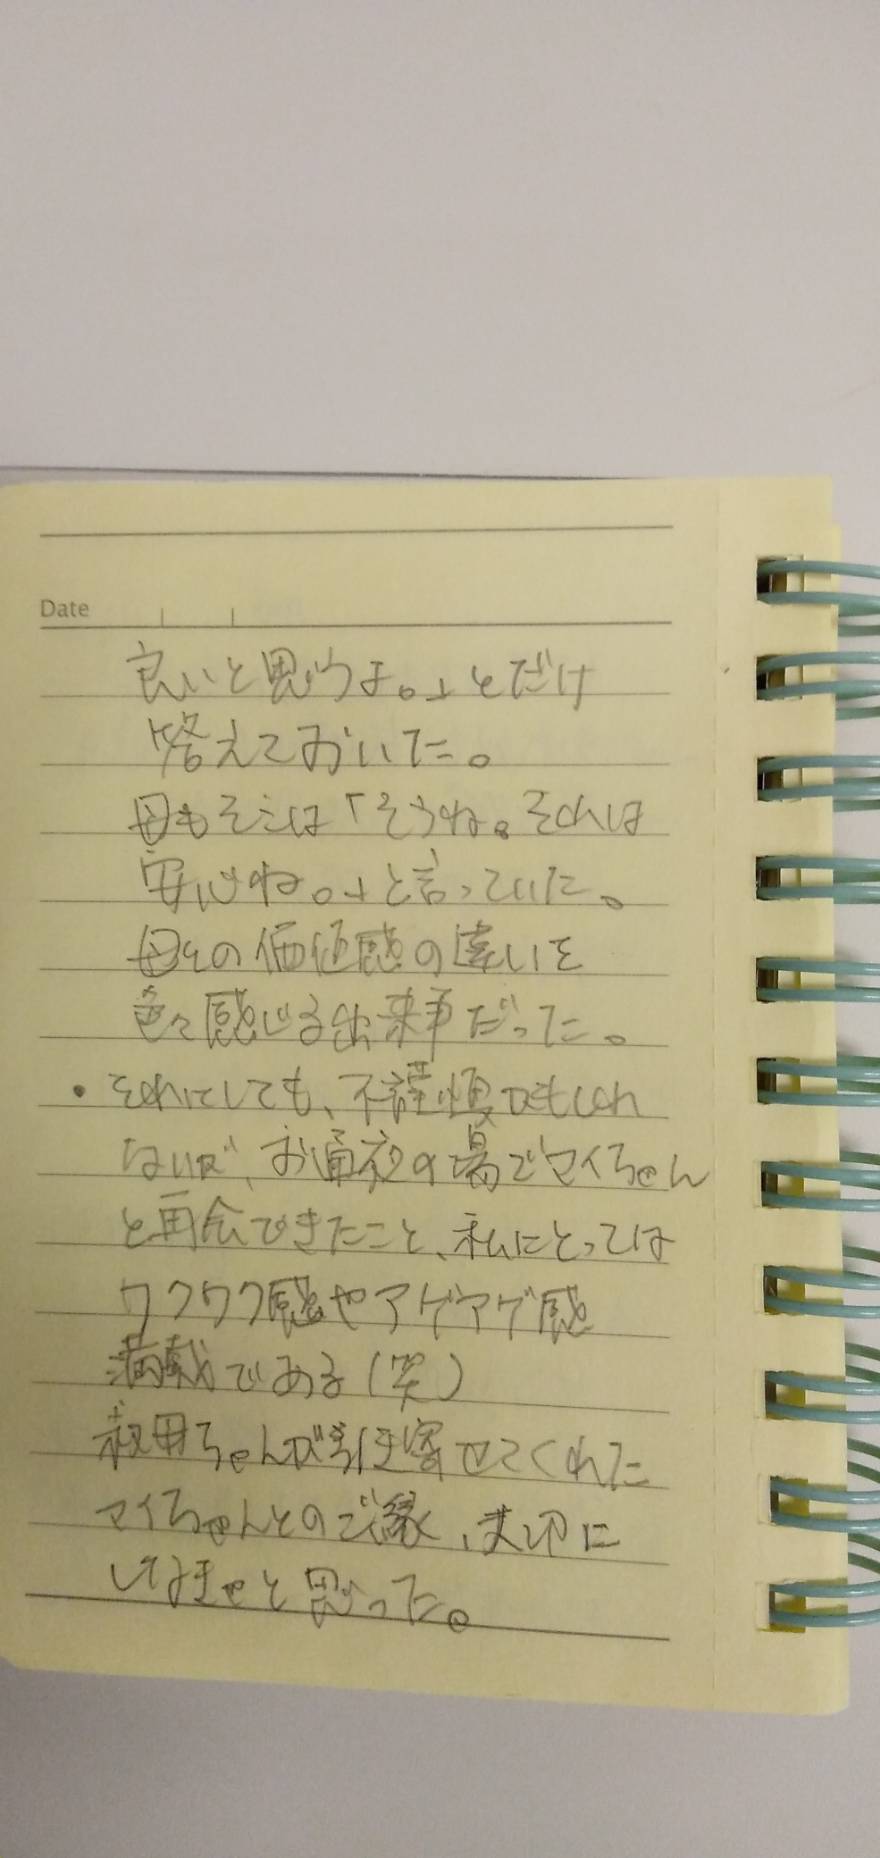 Date
良いと思うよ。」とだけ
答えておいた。
母もそこは「そうね。それは
安心ね。」と言っていた。
母との価値感の違いを
色々感じる出来事だった。
・それにしても、不謹慎かもしれ
ないが、お通夜の場でマイちゃん
と再会できたこと、私にとっては
ワクワク感やアゲアゲ感
満載である(笑)
叔母ちゃんが引き寄せてくれた
マイちゃんとのご縁、大切に
しなきゃと思った。